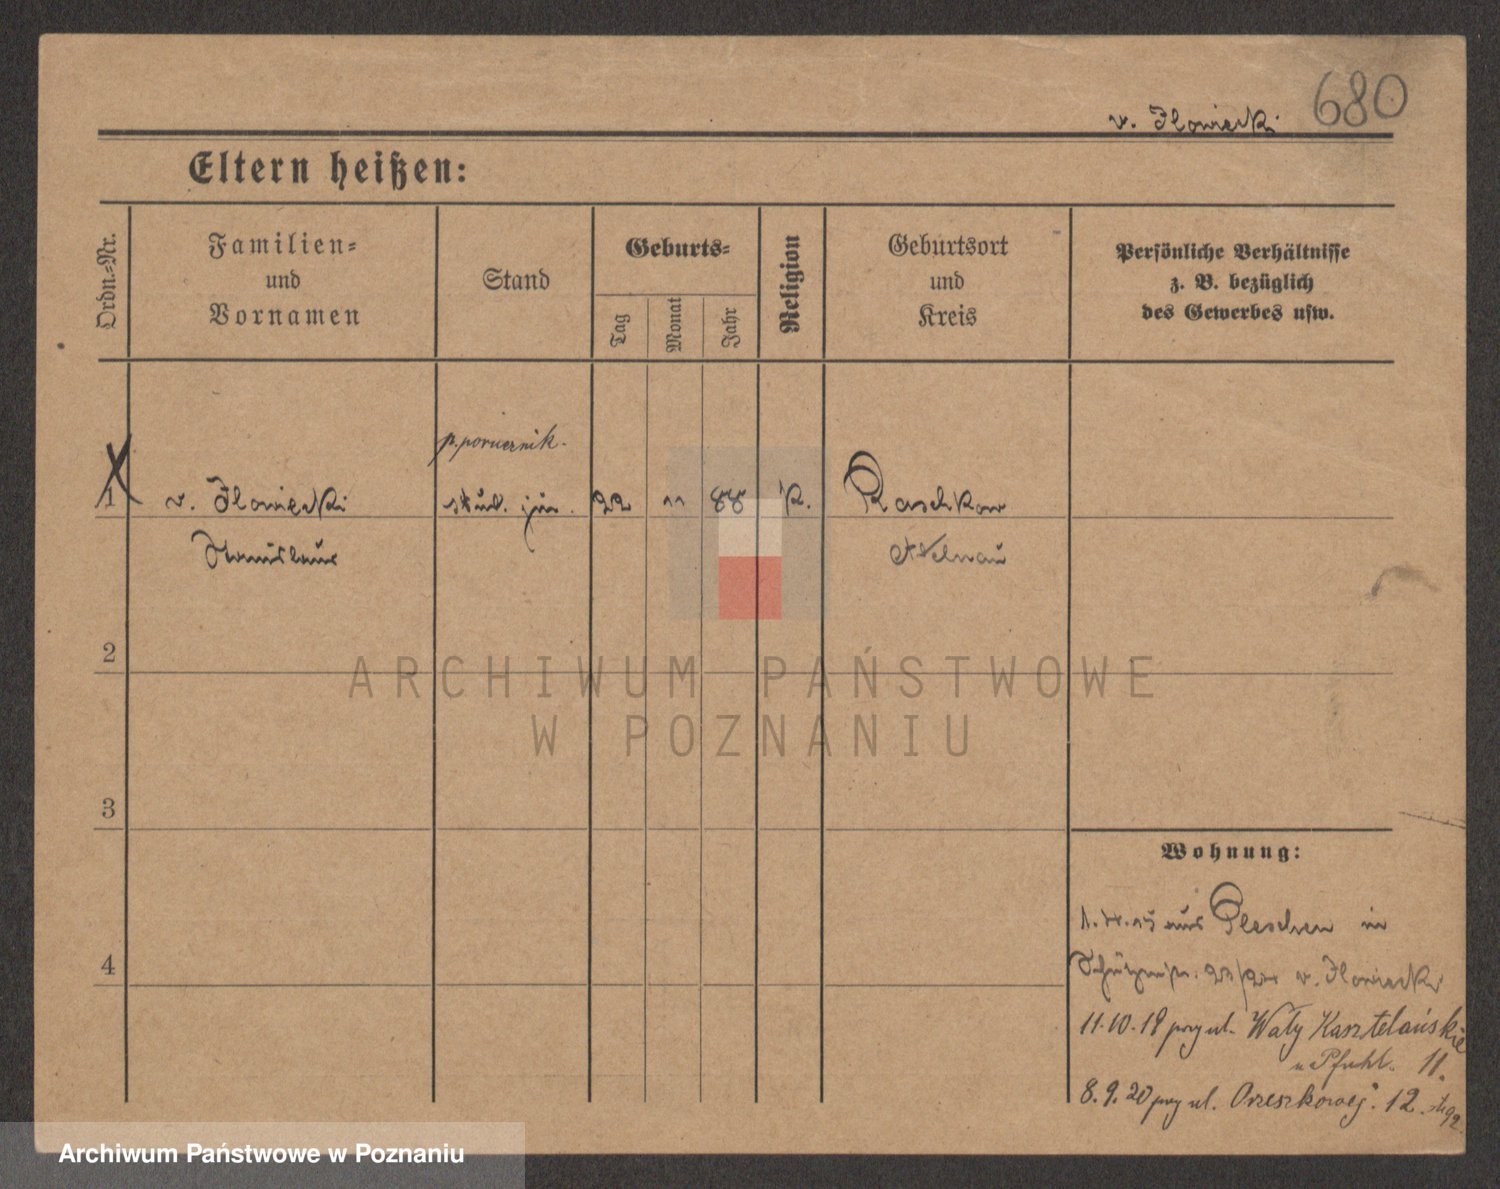 680
v. Ilowiecki
Eltern heißen:
Ordn.-Nr.
Familien-
und
Vornamen
Stand
Geburts-
Tag
Monat
Jahr
Religion
Geburtsort
und
Kreis
Persönliche Verhältnisse
z. B. bezüglich
des Gewerbes usw.
p. porucznik.
1 v. Ilowiecki stud. jur. 22 11 88 K. Raschkow
Stanislaus Adelnau
2
ARCHIWUM PAŃSTWOWE
W POZNANIU
3
Wohnung:
aus Pleschen in
4
v. Ilowiecki
11.10.19 przy ul. Wały Kasztelańskie
u Pfuhl. 11.
8.9.20 przy ul. Orzeszkowej. 12.
Archiwum Państwowe w Poznaniu